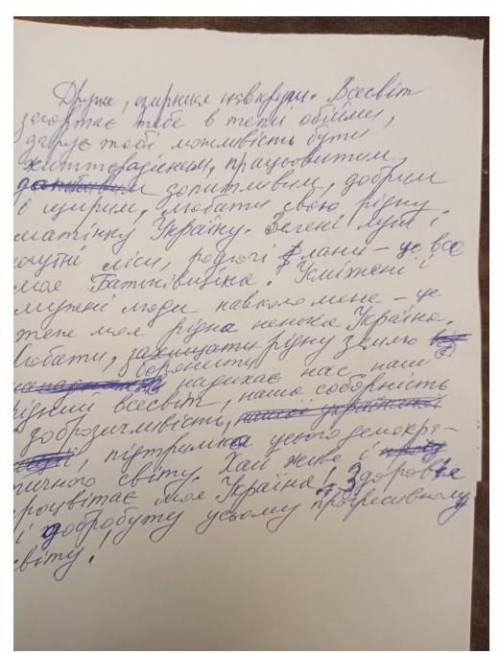 Друже, озирнися навкруги. Всесвіт
загортає тебе в теплі обійми,
дарує тобі можливість бути
життєрадісним, працьовитим,
допитливим, добрим
і щирим, любити свою рідну
матінку Україну. Зелені луги і
ліси, родючі лани – це все
моя Батьківщина. Усміхнені і
мужні люди навколо мене – це
теж моя рідна ненька Україна.
Любити, захищати рідну землю
боронити
надихає нас наш
рідний всесвіт, наша соборність
доброзичливість,
, підтримка усього демокра-
тичного світу. Хай живе і
процвітає моя Україна! Здоров'я
і добробуту усьому прогресивному
світу!